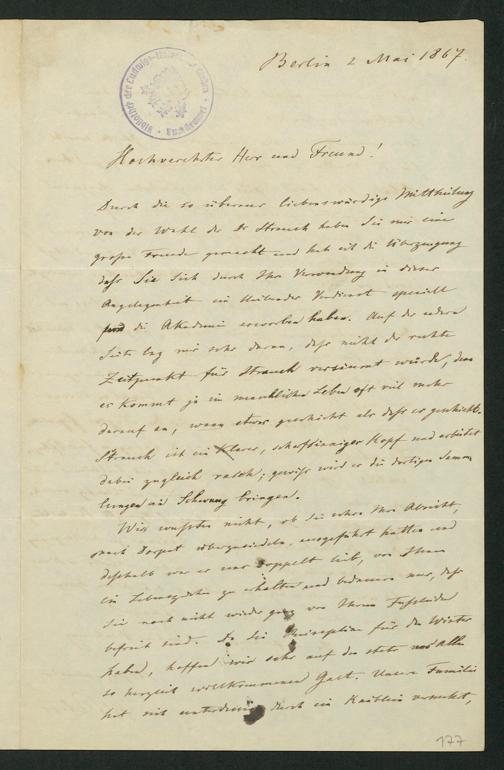 Berlin 2 Mai 1867.
Bibliothek der Ludwigs-
Hochverehrter Herr und Freund!
Durch die so überaus liebenswürdige Mittheilung
von der Wahl des Dr Strauch haben Sie mir eine
große Freude gemacht und hab ich die Überzeugung
daß Sie sich durch Ihre Verwendung in dieser
Angelegenheit ein Verdienst speciell
die Akademie erworben haben. Auf der andern
Seite lag mir sehr daran, daß nicht der rechte
Zeitpunkt für Strauch versäumt würde, denn
es kommt ja im menschlichen Leben oft viel mehr
darauf an, wann etwas geschieht als daß es geschieht.
Strauch ist ein klarer, scharfsinniger Kopf und arbeitet
dabei zugleich rasch; gewiß wird er die dortigen Samm
lungen in Schwung bringen.
Wir wußten nicht, ob Sie schon Ihre Absicht,
nach Dorpat überzusiedeln, ausgeführt hatten und
deshalb war es uns doppelt lieb, von Ihnen
ein Lebenszeichen zu erhalten und bedauern nur, daß
Sie noch nicht wieder ganz von Ihrem Fußleiden
befreit sind. Da Sie für den Winter
haben, hoffen wir sehr auf den stets uns allen
so herzlich willkommenen Gast. Unsere Familie
hat sich durch ein vermehrt,
177